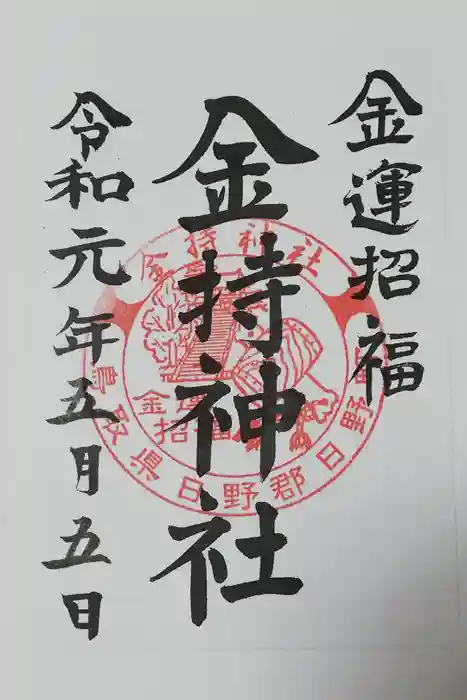 金運招福
金持神社
令和元年五月五日
金持神社
鳥取県日野郡日野町
金運
招福